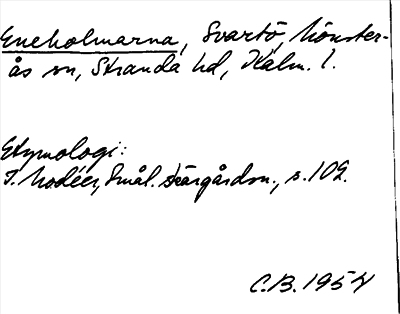 Eneholmarna, Svartö, Mönster-
ås sn, Stranda hd, Kalm. l.
Etymologi:
I. Modéer, Smål. skärgårdsn., s. 102.
C.B. 1954